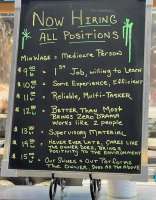 NOW HIRING
ALL POSITIONS
MIN WAGE = MEDIOCRE PERSON
$9.00 = 1ST JOB, WILLING TO LEARN
$10.00 = SOME EXPERIENCE, EFFICIENT
$11.00 = RELIABLE, MULTI-TASKER
$12.00 = BETTER THAN MOST
BRINGS ZERO DRAMA
WORKS LIKE 2 PEOPLE
$13.00 = SUPERVISORY MATERIAL
$14.00 = NEVER EVER LATE, CARES LIKE
THE OWNER DOES, BRINGS
POSITIVITY TO THE ENVIRONMENT
$15.00 = OUT SHINES + OUT PERFORMS
THE OWNER, DOES ALL THE ABOVE